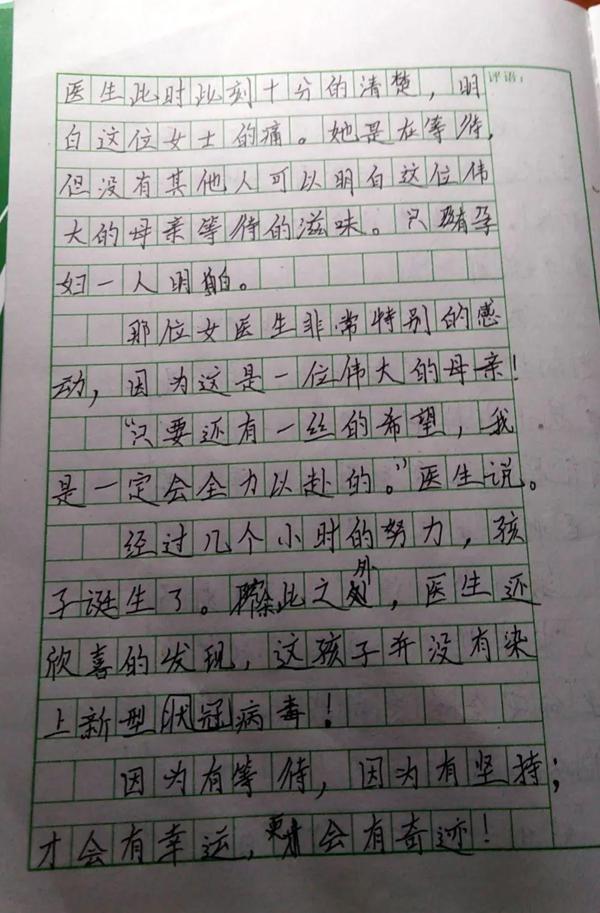 医生此时此刻十分的清楚，明
评语：
白这位女士的痛。她是在等待，
但没有其他人可以明白这位伟
大的母亲等待的滋味。只有孕
妇一人明白。
那位女医生非常特别的感
动，因为这是一位伟大的母亲！
“只要还有一丝的希望，我
是一定会全力以赴的。”医生说。
经过几个小时的努力，孩
子诞生了。除此之外，医生还
欣喜的发现，这孩子并没有染
上新型状冠病毒！
因为有等待，因为有坚持；
才会有幸运，更会有奇迹！